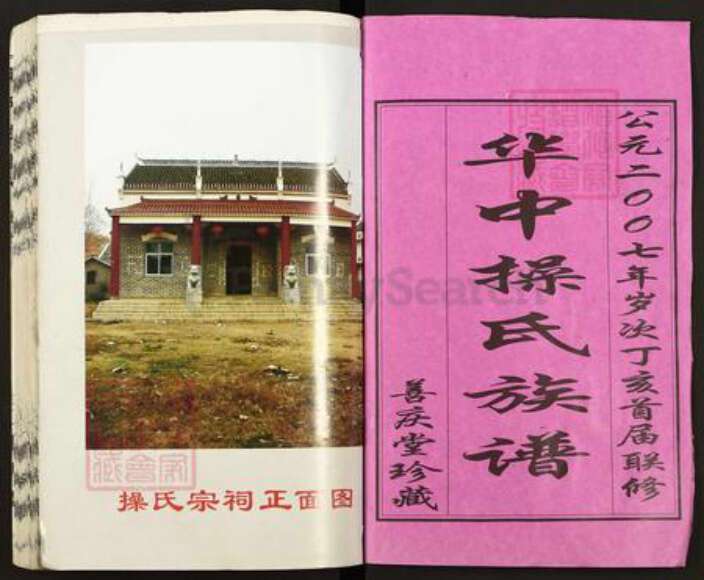 公元二〇〇七年岁次丁亥首届联修
华中操氏族谱
善庆堂珍藏
操氏宗祠正面图
FamilySearch